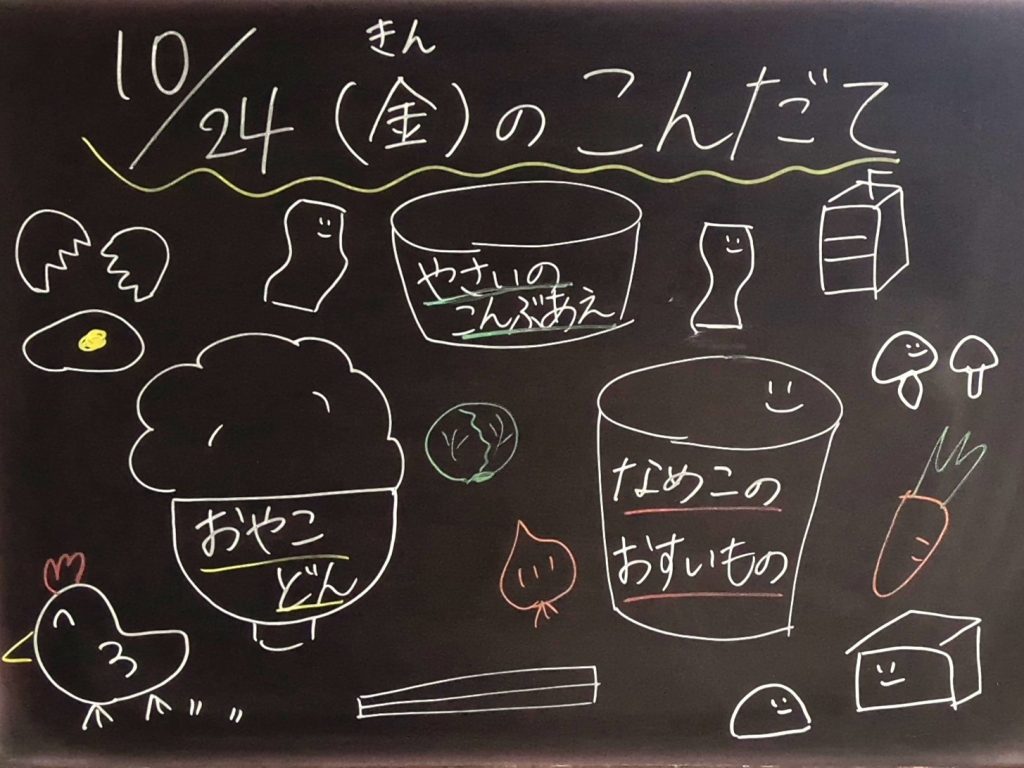 きん
10/24(金)のこんだて
やさいの
こんぶあえ
おやこ
どん
なめこの
おすいもの